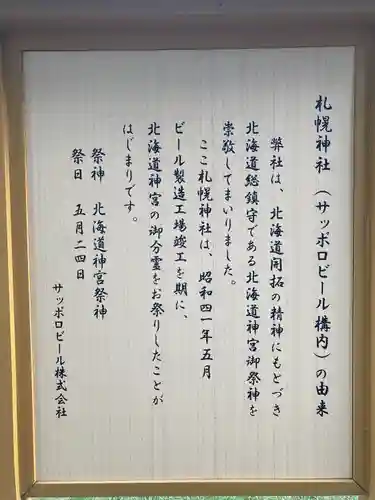 札幌神社（サッポロビール構内）の由来
弊社は、北海道開拓の精神にもとづき
北海道総鎮守である北海道神宮御祭神を
崇敬してまいりました。
ここ札幌神社は、昭和四一年五月
ビール製造工場竣工を期に、
北海道神宮の御分霊をお祭りしたことが
はじまりです。
祭神 北海道神宮祭神
祭日 五月二四日
サッポロビール株式会社